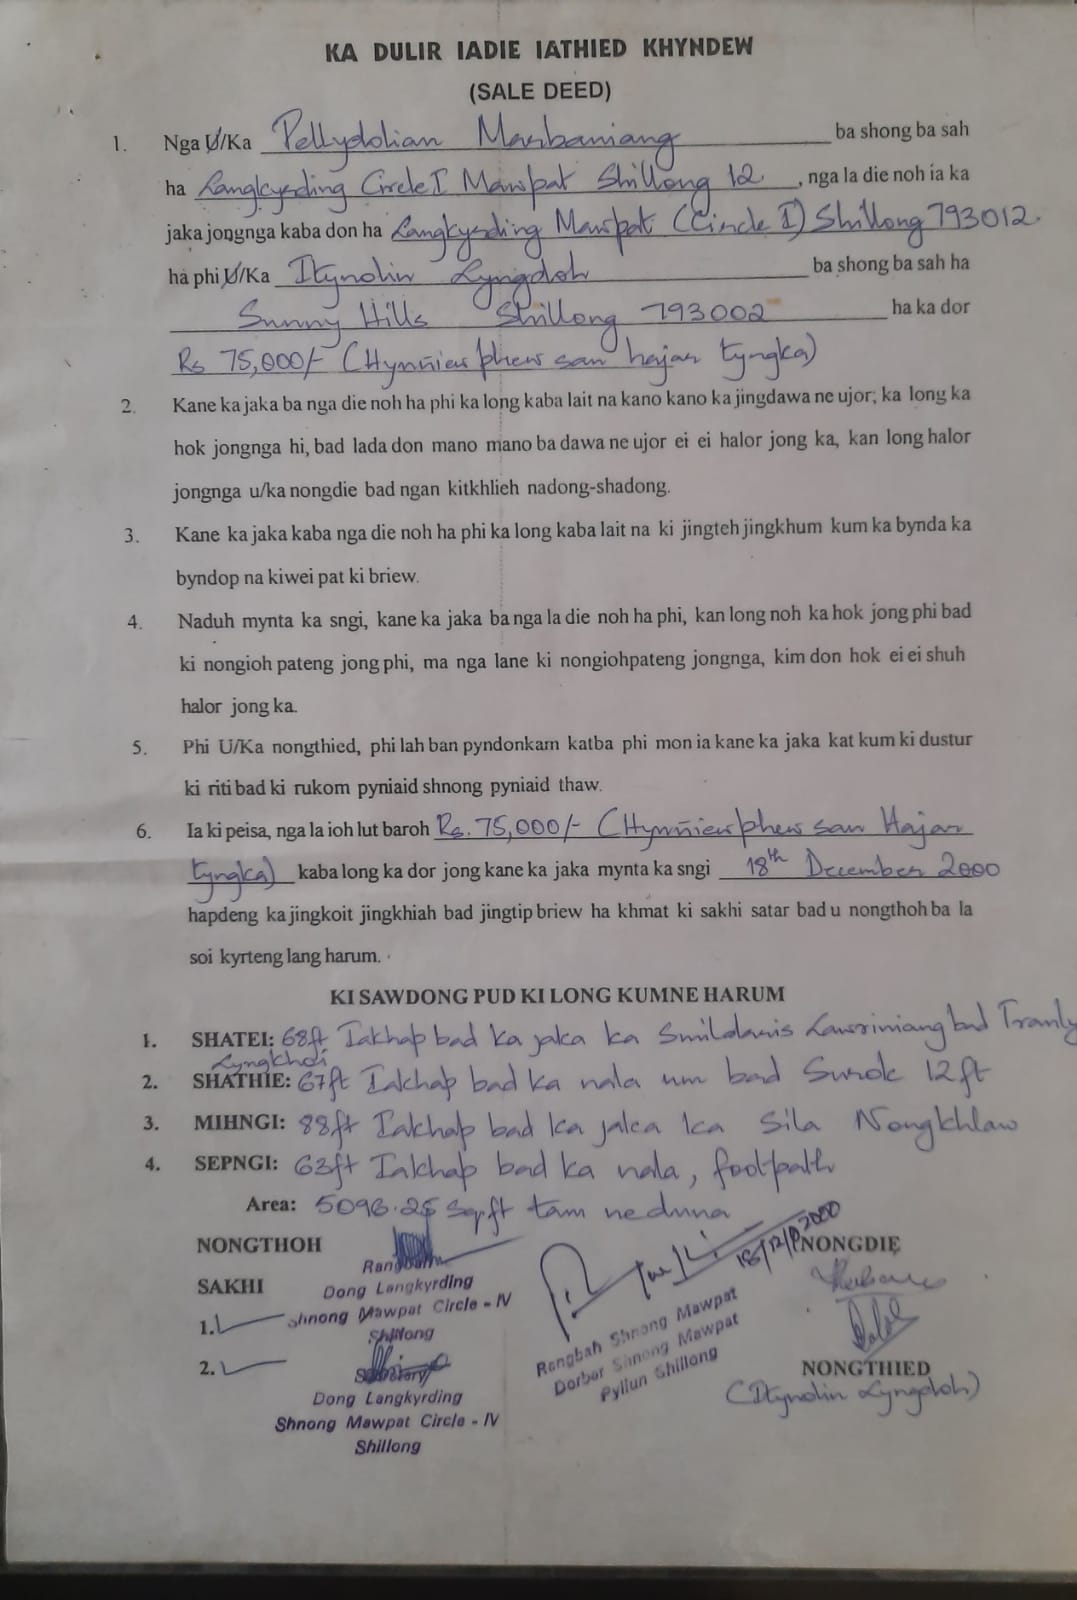 KA DULIR IADIE IATHIED KHYNDEW
(SALE DEED)
1. Nga U/Ka Pellydolian Marbaniang ba shong ba sah
ha Langkyrding Circle I Mawpat Shillong 12, nga la die noh ia ka
jaka jongnga kaba don ha Langkyrding Mawpat (Circle I) Shillong 793012.
ha phi U/Ka Itynolin Lyngdoh ba shong ba sah ha
Sunny Hills Shillong 793002 ha ka dor
Rs 75,000/- (Hynñiewphew san hajar tyngka)
2. Kane ka jaka ba nga die noh ha phi ka long kaba lait na kano kano ka jingdawa ne ujor; ka long ka
hok jongnga hi, bad lada don mano mano ba dawa ne ujor ei ei halor jong ka, kan long halor
jongnga u/ka nongdie bad ngan kitkhlieh nadong-shadong.
3. Kane ka jaka kaba nga die noh ha phi ka long kaba lait na ki jingteh jingkhum kum ka bynda ka
byndop na kiwei pat ki briew.
4. Naduh mynta ka sngi, kane ka jaka ba nga la die noh ha phi, kan long noh ka hok jong phi bad
ki nongioh pateng jong phi, ma nga lane ki nongiohpateng jongnga, kim don hok ei ei shuh
halor jong ka.
5. Phi U/Ka nongthied, phi lah ban pyndonkam katba phi mon ia kane ka jaka kat kum ki dustur
ki riti bad ki rukom pyniaid shnong pyniaid thaw.
6. Ia ki peisa, nga la ioh lut baroh Rs. 75,000/- (Hynñiewphew san Hajar
tyngka) kaba long ka dor jong kane ka jaka mynta ka sngi 18th December 2000
hapdeng ka jingkoit jingkhiah bad jingtip briew ha khmat ki sakhi satar bad u nongthoh ba la
soi kyrteng lang harum.
KI SAWDONG PUD KI LONG KUMNE HARUM
1. SHATEI: 68ft Iakhap bad ka jaka ka Smildanis Lawriniang bad Tranly
Lyngkhoi
2. SHATHIE: 67ft Iakhap bad ka nala um bad Surok 12ft
3. MIHNGI: 88ft Iakhap bad ka jaka ka Sila Nongkhlaw
4. SEPNGI: 63ft Iakhap bad ka nala, footpath
Area: 5096.25 Sq.ft tam ne duna
NONGTHOH
Rangbah
SAKHI
Dong Langkyrding
1. Shnong Mawpat Circle - IV
Shillong
2. Secretary
Dong Langkyrding
Shnong Mawpat Circle - IV
Shillong
18/12/2000
Rangbah Shnong Mawpat
Dorbar Shnong Mawpat
Pyllun Shillong
NONGDIE
NONGTHIED
(Itynolin Lyngdoh)